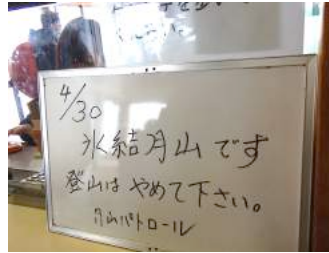 4/30
氷結月山です
登山はやめて下さい。
月山パトロール